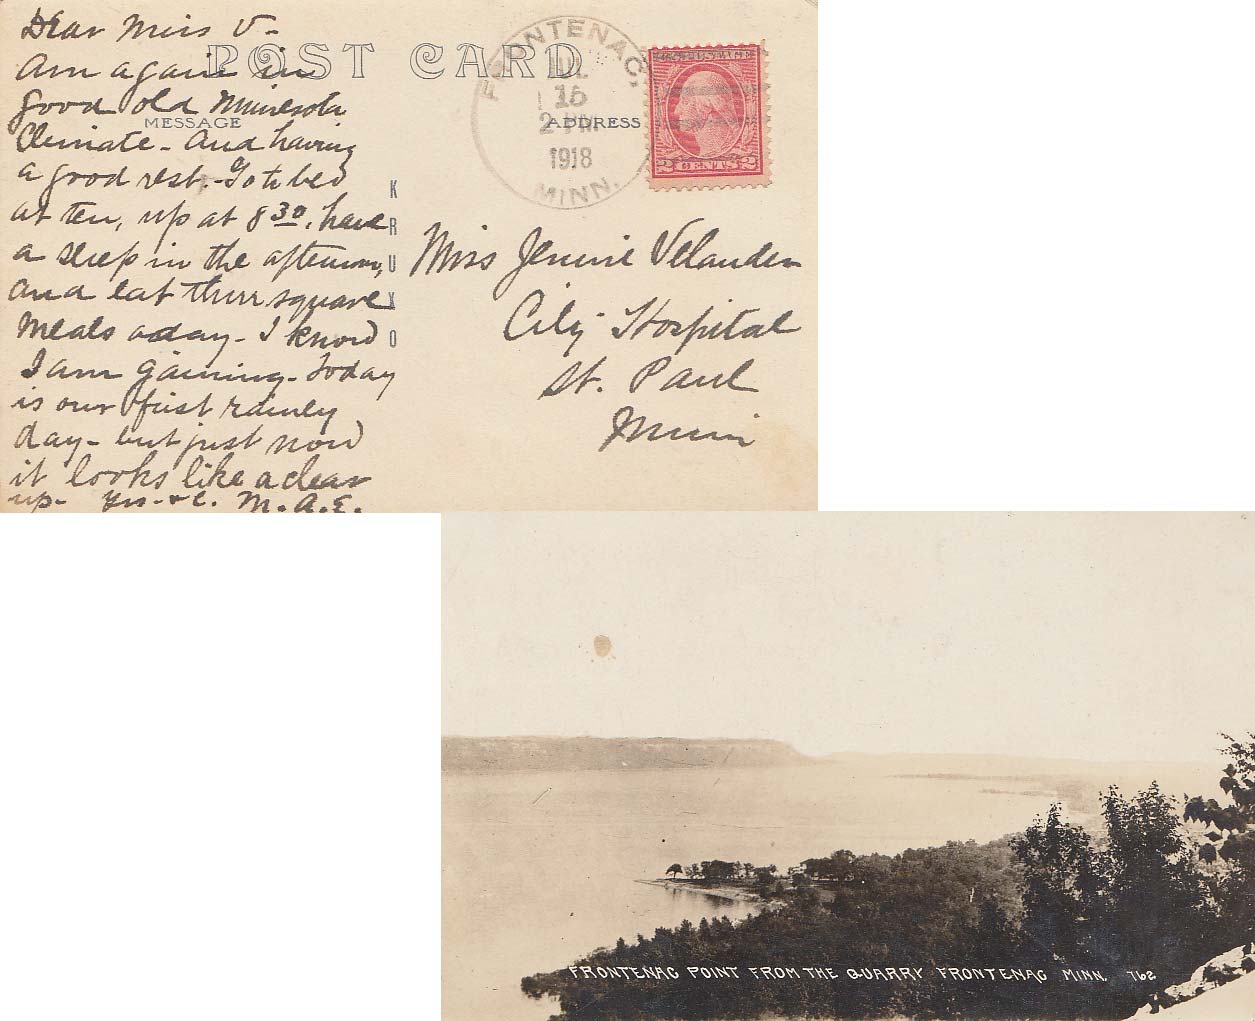 Dear Miss V-
POST CARD
Am again in
good old Minnesota
MESSAGE
Climate - And having
a good rest. - Go to bed
at ten, up at 8 30, have
a sleep in the afternoon,
and eat three square
meals a day - I know
I am gaining - Today
is our first rainey
day - but just now
it looks like a clear
up - Yrs - &c. M.A.E.
KRUXO
FRONTENAC,
JUL
15
2 PM
1918
MINN.
ADDRESS
U.S. POSTAGE
2 CENTS 2
Miss Jennie Velander
City Hospital
St. Paul
Minn
FRONTENAC POINT FROM THE QUARRY FRONTENAC MINN. 762